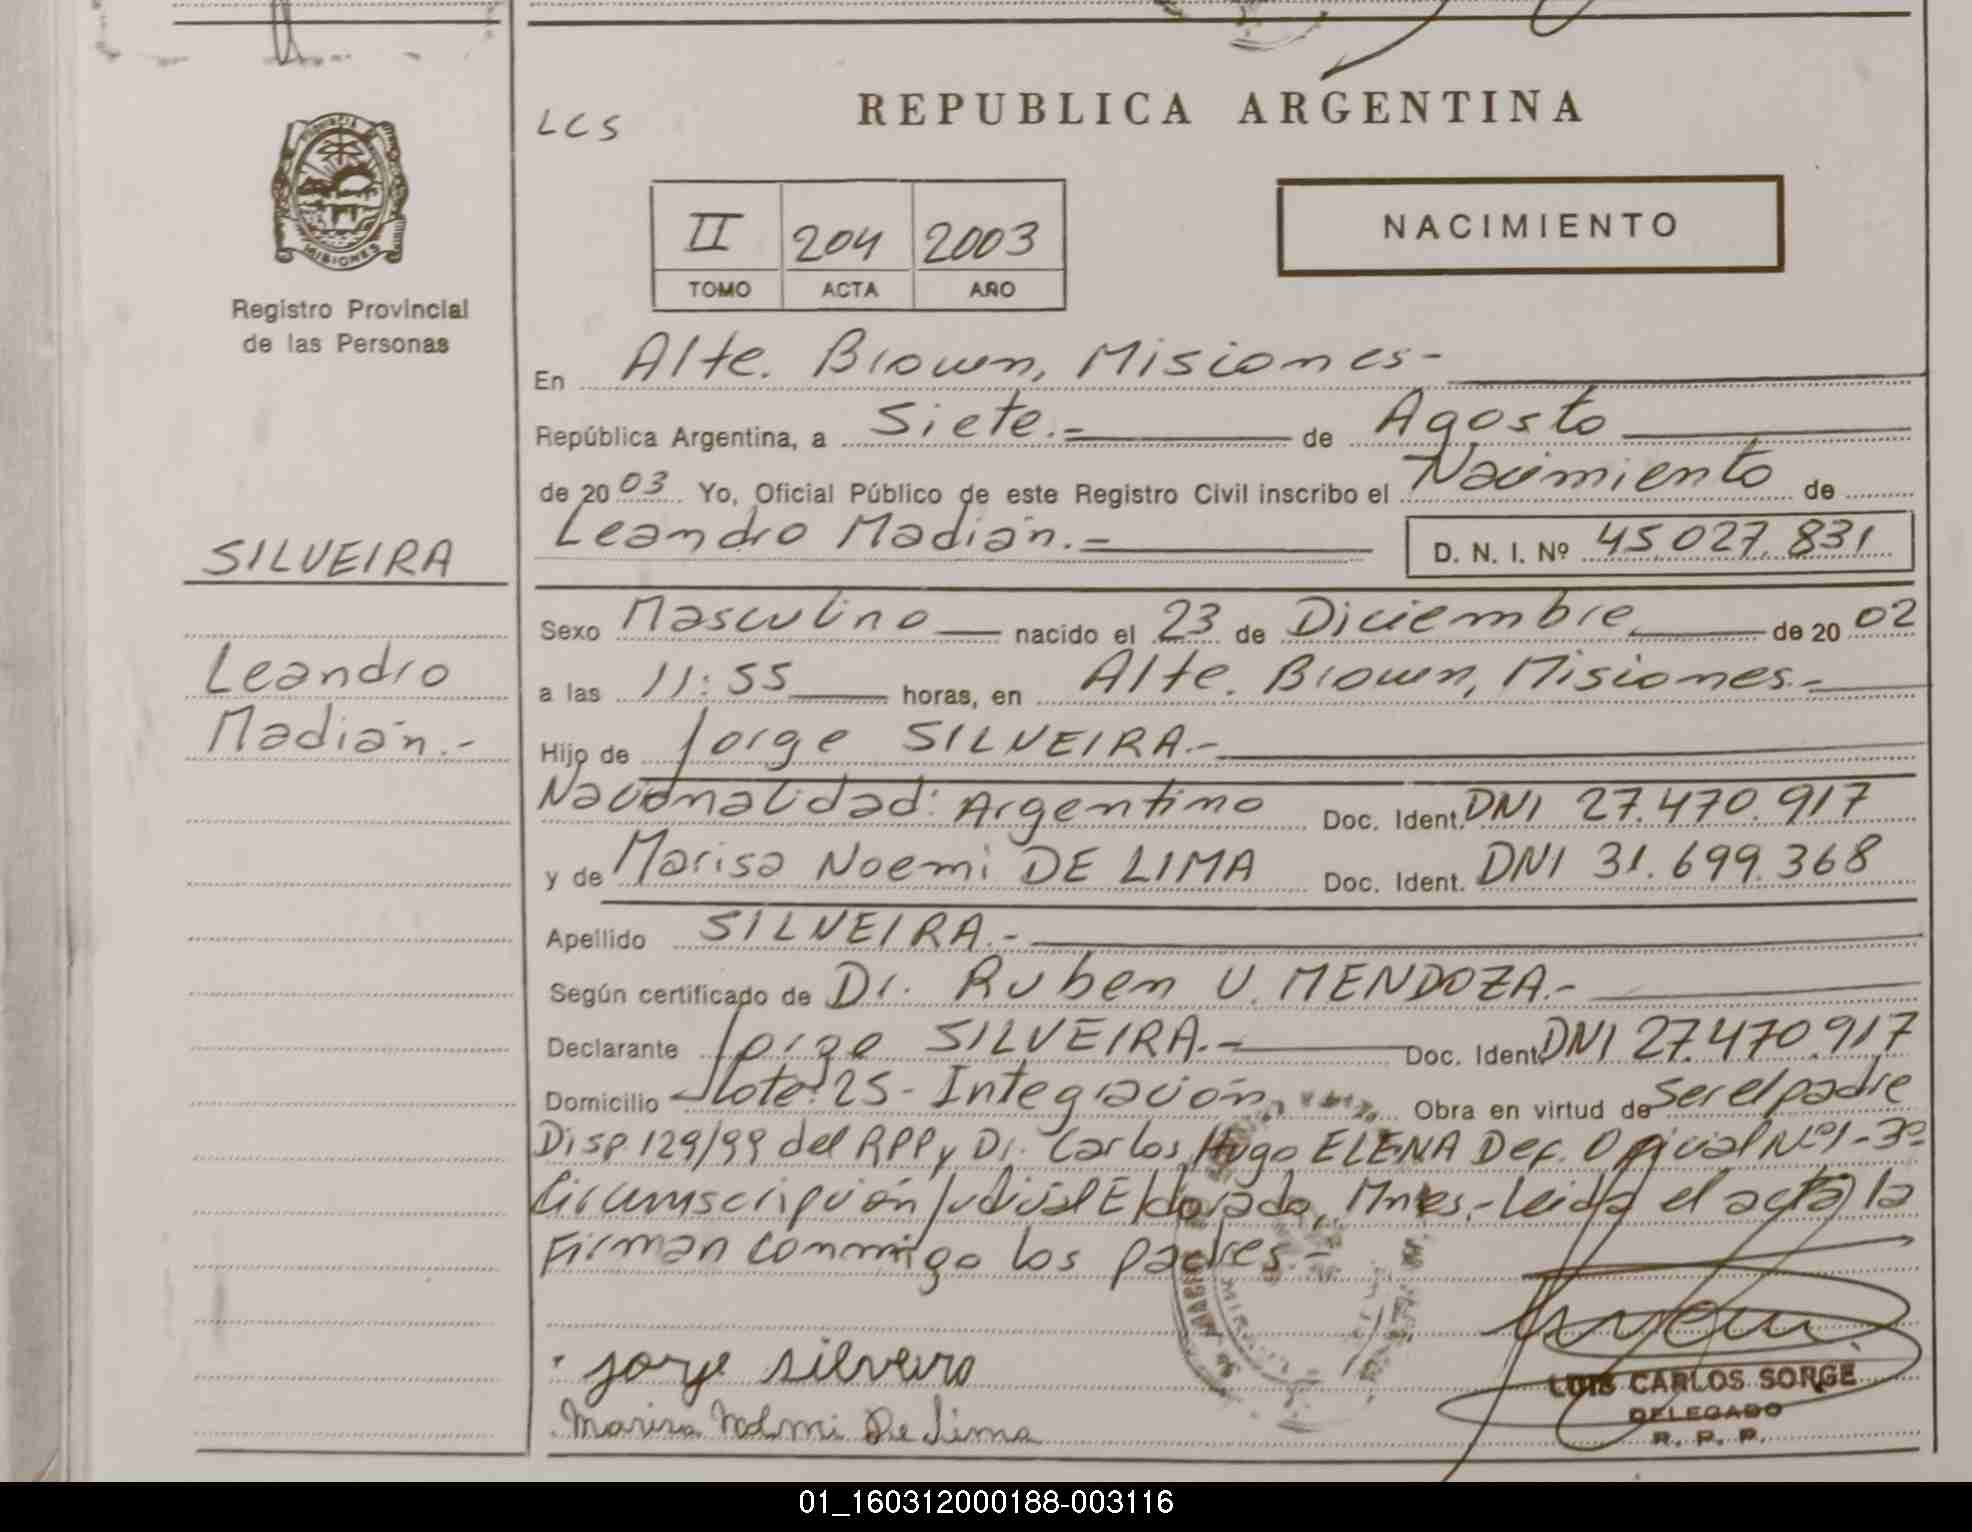 REPUBLICA ARGENTINA
LCS
PROVINCIA
MISIONES
Registro Provincial
de las Personas
II 204 2003
TOMO ACTA AÑO
NACIMIENTO
En Alte. Brown, Misiones-
República Argentina, a Siete.- de Agosto
de 2003 Yo, Oficial Público de este Registro Civil inscribo el Nacimiento de
Leandro Madián.- D. N. I. Nº 45.027.831
SILVEIRA
Leandro
Madián.-
Sexo Masculino nacido el 23 de Diciembre de 2002
a las 11:55 horas, en Alte. Brown, Misiones.-
Hijo de Jorge SILVEIRA.-
Nacionalidad: Argentino Doc. Ident. DNI 27.470.917
y de Marisa Noemi DE LIMA Doc. Ident. DNI 31.699.368
Apellido SILVEIRA.-
Según certificado de Dr. Ruben U. MENDOZA.-
Declarante Jorge SILVEIRA.- Doc. Ident. DNI 27.470.917
Domicilio Lote: 25 - Integración Obra en virtud de ser el padre
Disp. 129/99 del RPP y Dr. Carlos Hugo ELENA Def. Oficial Nº1-3º
Circunscripción Judicial Eldorado, Mnes.- Leida el acta, la
Firman conmigo los padres.-
Jorge silveira
Marisa Noemi De Lima
LUIS CARLOS SORGE
DELEGADO
R. P. P.
01_160312000188-003116